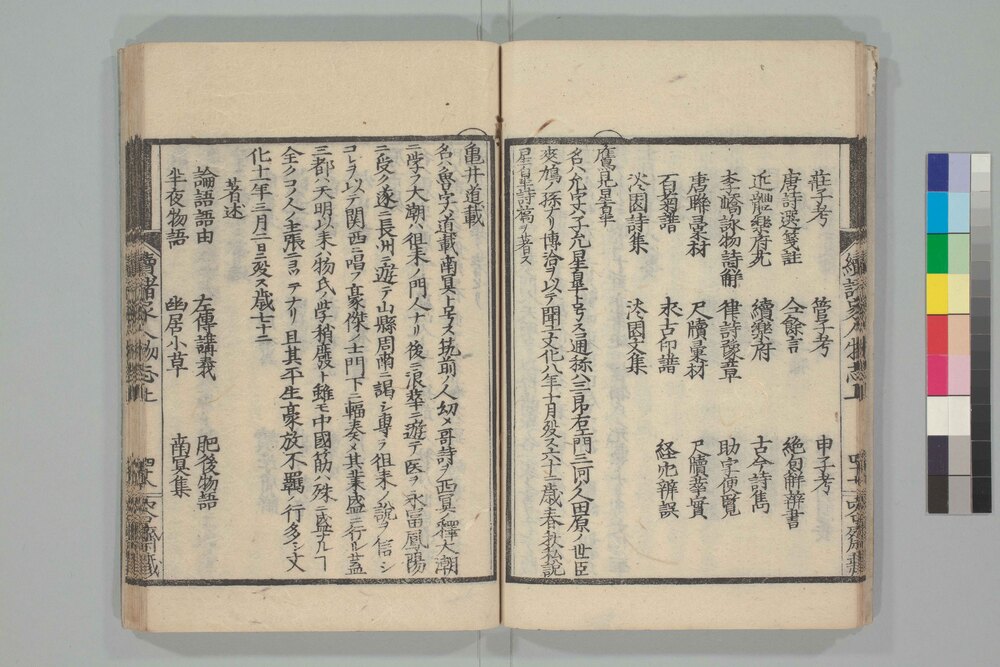 荘子考 管子考 申子考
唐詩選箋註 仝餘言 絶句解辨書
近體樂府尤 續樂府 古今詩雋
李嶠詠物詩解 律詩󠄁󠄁彙材 助字便覧
唐聯彙材 尺牘彙材 尺牘拳實
百菊譜 求古印譜 経史辨誤
淡囙詩集 淡囙文集
鷹見星皐
名ハ允字ハ子允星皐ト号ス通称ハ三郎左エ門三河ノ人田原ノ世臣
爽鳩ノ孫ナリ博洽ヲ以テ聞ユ文化八年十月殁ス六十一歳春秋松説
星皐詩藁ヲ著ス
亀井道載
名ハ魯字ハ道載南冥ト号ス筑前ノ人幼ノ哥詩ヲ西冥ノ釋大潮
ニ学フ大潮ハ徂来ノ門人ナリ後ニ浪華ニ遊テ医ヲ永富鳳陽
ニ受ク遂ニ長州ニ遊テ山縣周南ニ謁シ専ラ徂来ノ説ヲ信シ
コレヲ以テ関西ニ唱フ豪傑ノ士門下ニ輻奏メ其業盛ニ行ル蓋
三都ハ天明以来ノ物氏ノ学稍廢ト雖モ中國筋ハ殊ニ盛ナルヿ
全クコノ人ノ主張ニ言フテナリ且其平生豪放不羈ノ行多シ文
化十一年三月二日ニ殁ス歳七十二
著述
論語語由 左傳講義 肥後物語
半夜物語 幽居小草 南冥集
續諸家人物志上